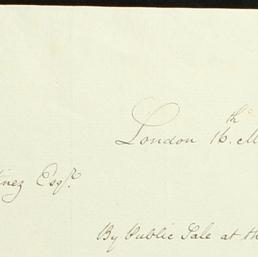 London 16th M
inez Esqr.
By Public Sale at th